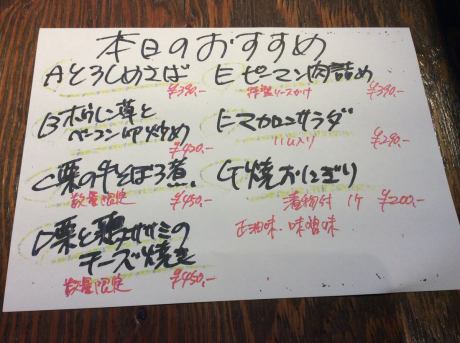 本日のおすすめ
A とろしめさば
¥380.-
B ほうれん草と
ベーコン卵炒め
¥420.-
C 栗の牛そぼろ煮
数量限定 ¥450.-
D 栗と鶏ササミの
チーズ焼き
数量限定 ¥450.-
E ピーマン肉詰め
洋風ソースかけ ¥390.-
F マカロニサラダ
ハム入り ¥280.-
G 焼おにぎり
漬物付 1ケ ¥200.-
正油味・味噌味